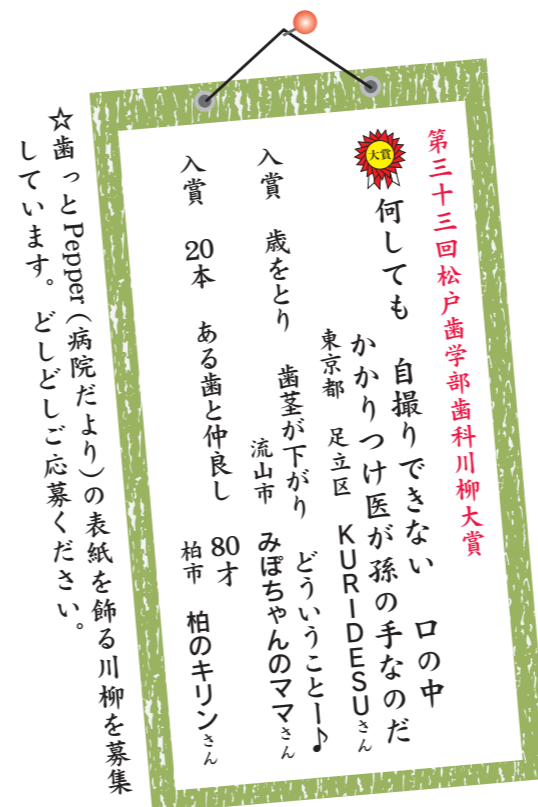 第三十三回松戸歯学部歯科川柳大賞
大賞
何しても　自撮りできない　口の中
かかりつけ医が孫の手なのだ
東京都　足立区　KURIDESUさん
入賞　歳をとり　歯茎が下がり　どういうことー♪
流山市　みぽちゃんのママさん
入賞　20本　ある歯と仲良し　80才
柏市　柏のキリンさん
☆歯っとPepper（病院だより）の表紙を飾る川柳を募集
しています。どしどしご応募ください。